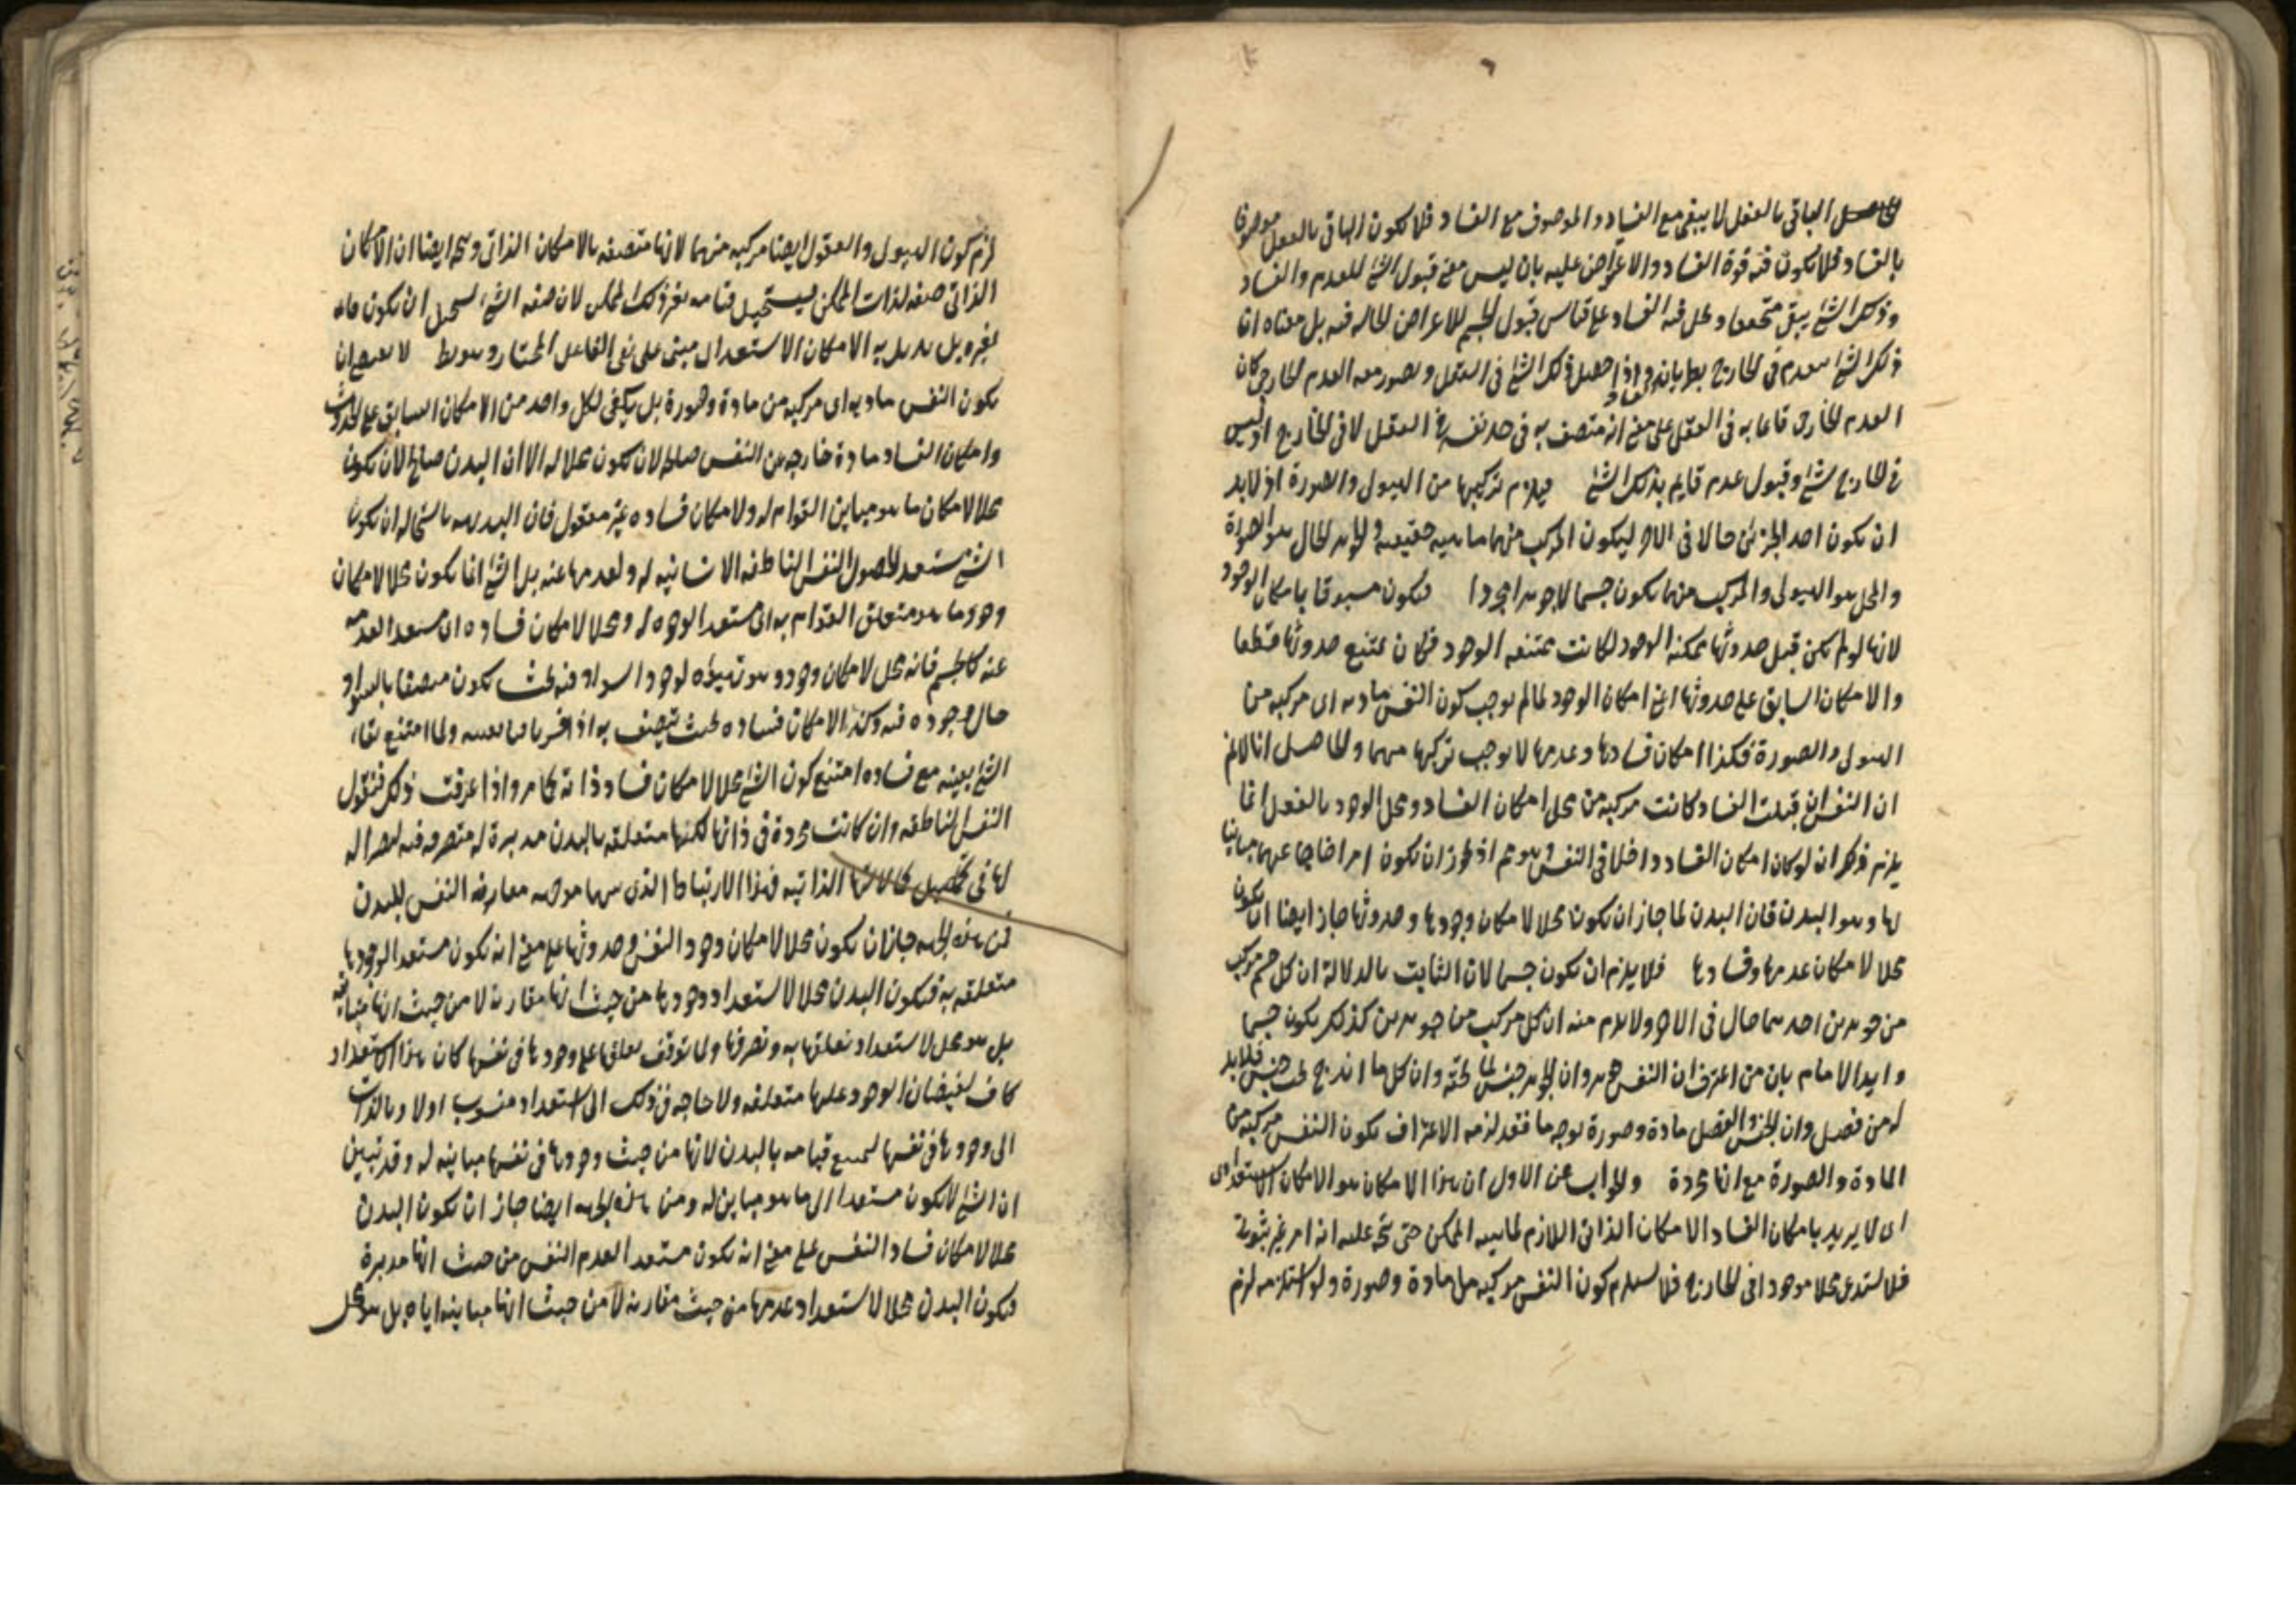 الباقى بالفعل لا يبقى مع الفساد والموصوف مع الفساد فلا يكون الباقى بالفعل موصوفا
بالفساد فلا يكون فيه قوة الفساد والاعراض عليه بان ليس معنى قبول الشئ للعدم والفساد
وذلك الشئ يبقى متحققا و يحل فيه الفساد على قياس قبول الجسم للاعراض الحالة فيه بل معناه ان
ذلك الشئ ينعدم فى الخارج بطريان الفساد واذا حصل ذلك الشئ فى العقل وتصور معه العدم الخارجى كان
العدم الخارجى قائما به فى العقل على معنى انه متصف به فى حد نفسه فى العقل لا فى الخارج اذ ليس
فى الخارج شئ وقبول عدم قايم بذلك الشئ فيلزم تركيبها من الهيولى والصورة اذ لا بد
ان يكون احد الجزئين حالا فى الاخر ليكون المركب منهما ماهية حقيقية والجوهر الحال هو الصورة
والمحل هو الهيولى والمركب منهما يكون جسما لا جوهرا مجردا فيكون مسبوقا بامكان الوجود
لانها لو لم يكن قبل حدوثها ممكنة الوجود لكانت ممتنعة الوجود فكان يمتنع حدوثها قطعا
والامكان السابق على حدوثها اعنى امكان الوجود لما لم يوجب كون النفس مادية اى مركبة من
الهيولى والصورة فكذا امكان فسادها وعدمها لا يوجب تركبها منهما والحاصل انا لا نم
ان النفس ان قبلت الفساد كانت مركبة من محل امكان الفساد ومحل الوجود بالفعل انما
يلزم ذلك ان لو كان امكان الفساد داخلا فى النفس وهو مم اذ يجوز ان يكون امرا خارجا عنها مباينا
لها وهو البدن فان البدن لما جاز ان يكون محلا لامكان وجودها وحدوثها جاز ايضا ان يكون
محلا لامكان عدمها وفسادها فلا يلزم ان يكون جسما لان الثابت بالدلالة ان كل جسم مركب
من جوهرين احدهما حال فى الاخر ولا يلزم منه ان كل مركب من جوهرين كذلك يكون جسما
وايد الامام بان من اعترف ان النفس جوهر وان الجوهر جنس لما تحته وان كل ما اندرج تحت جنس فلا بد
له من فصل وان الجنس والفصل مادة وصورة بوجه ما فقد لزمه الاعتراف بكون النفس مركبة من
المادة والصورة مع انها مجردة والجواب عن الاول ان هذا الامكان هو الامكان الاستعدادى
اى لا يريد بامكان الفساد الامكان الذاتى اللازم لماهية الممكن حتى يتجه عليه انه امر غير ثبوتى
فلا يستدعى محلا موجودا فى الخارج فلا يستلزم كون النفس مركبة من مادة وصورة ولو استلزمه لزم
لزم كون الهيولى والعقول ايضا مركبة منهما لانها متصفة بالامكان الذاتى ويتجه ايضا ان الامكان
الذاتى صفة لذات الممكن فيستحيل قيامه بغير ذلك الممكن لان صفة الشئ يستحيل ان تكون قائمة
بغيره بل يريد به الامكان الاستعدادى مبنى على نفى الفاعل المختار لا يقتضى ان
يكون النفس مادية اى مركبة من مادة وصورة بل يكفى لكل واحد من الامكان السابق على الحدوث
وامكان الفساد مادة خارجة عن النفس صالحة لان تكون محلا له الا ان البدن صالح لان يكون
محلا لامكان ما هو مباين القوام له ولا لامكان فساده غير معقول فان البديهة باستحالة ان يكون
الشئ مستعدا لحصول النفس الناطقة الانسانية له ولعدمها عنه بل الشئ انما يكون محلا لامكان
وجود ما هو متعلق القوام به اى مستعدا لوجوده له ومحلا لامكان فساده اى مستعدا لعدمه
عنه كالجسم فانه محل لامكان وجود وهو تهيؤه لوجود السواد فيه بحيث يكون متصفا بالسواد
حال وجوده فيه وكذا لامكان فساده بحيث يتصف به اذا فسر باقيا بعينه ولما امتنع بقاء
الشئ بعينه مع فساده امتنع كون الشئ محلا لامكان فساد ذاته كما مر واذا عرفت ذلك فنقول
النفس الناطقة وان كانت مجردة فى ذاتها لكنها متعلقة بالبدن مدبرة له متصرفة فيه ليصير آلة
لها فى تحصيل كمالاتها الذاتية فهذا الارتباط الذى بينهما جهة مقارنة النفس للبدن
فمن هذه الجهة جاز ان يكون محلا لامكان وجود النفس وحدوثها على معنى انه يكون مستعدا لوجودها
متعلقة به فيكون البدن محلا لاستعداد وجودها من حيث انها مقارنة لا من حيث انها مباينة
بل هو محل لاستعداد تعلقها به وتصرفها ولما توقف تعلقها على وجودها فى نفسها كان هذا الاستعداد
كاف لفيضان الوجود عليها متعلقة ولا حاجة فى ذلك الى استعداد منسوب اولا وبالذات
الى وجودها فى نفسها ليمتنع قيامه بالبدن لانها من حيث وجودها فى نفسها مباينة له وقد تبين
ان الشئ لا يكون مستعدا الى ما هو مباين له ومن هذه الجهة ايضا جاز ان يكون البدن
محلا لامكان فساد النفس على معنى انه يكون مستعدا لعدم النفس من حيث انها مدبرة
فيكون البدن محلا لاستعداد عدمها من حيث مقارنة لا من حيث انها مباينة اياه بل هو محل